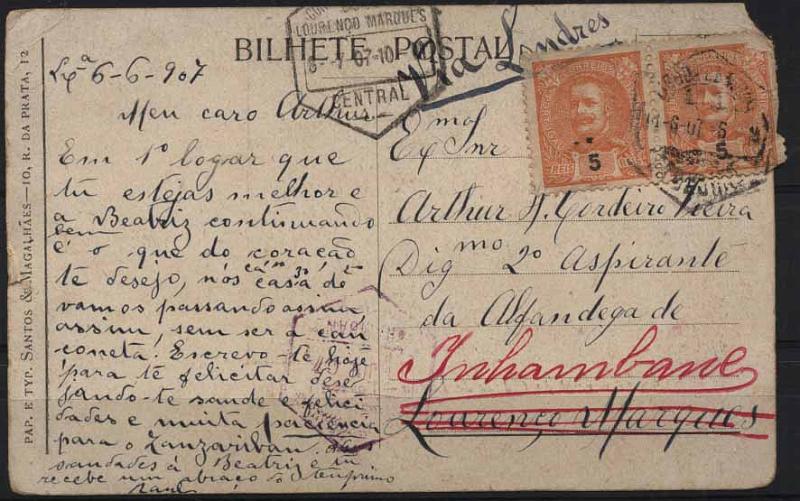 BILHETE POSTAL
PAP. E TYP. SANTOS & MAGALHÃES — 10, R. DA PRATA, 12
LOURENÇO MARQUES
CENTRAL
Via Londres
CORREIOS
5
REIS
5
Lxª 6-6-907
Meu caro Arthur
Em 1º logar que
tu estejas melhor e
a Beatriz continuando
bem
é o que do coração
te desejo, nós cá no 3º
casa de
vamos passando assim
assim, sem ser a can
coneta. Escrevo-te hoje
para te felicitar dese
jando-te saude e felici
dades e muita paciencia
para o Zanzariban.
saudades á Beatriz e tu
recebe um abraço do teu primo
Raul
Exmo
Snr
Arthur A. Cordeiro Vieira
Digmo 2º Aspirante
da Alfandega de
Inhambane
Lourenço Marques